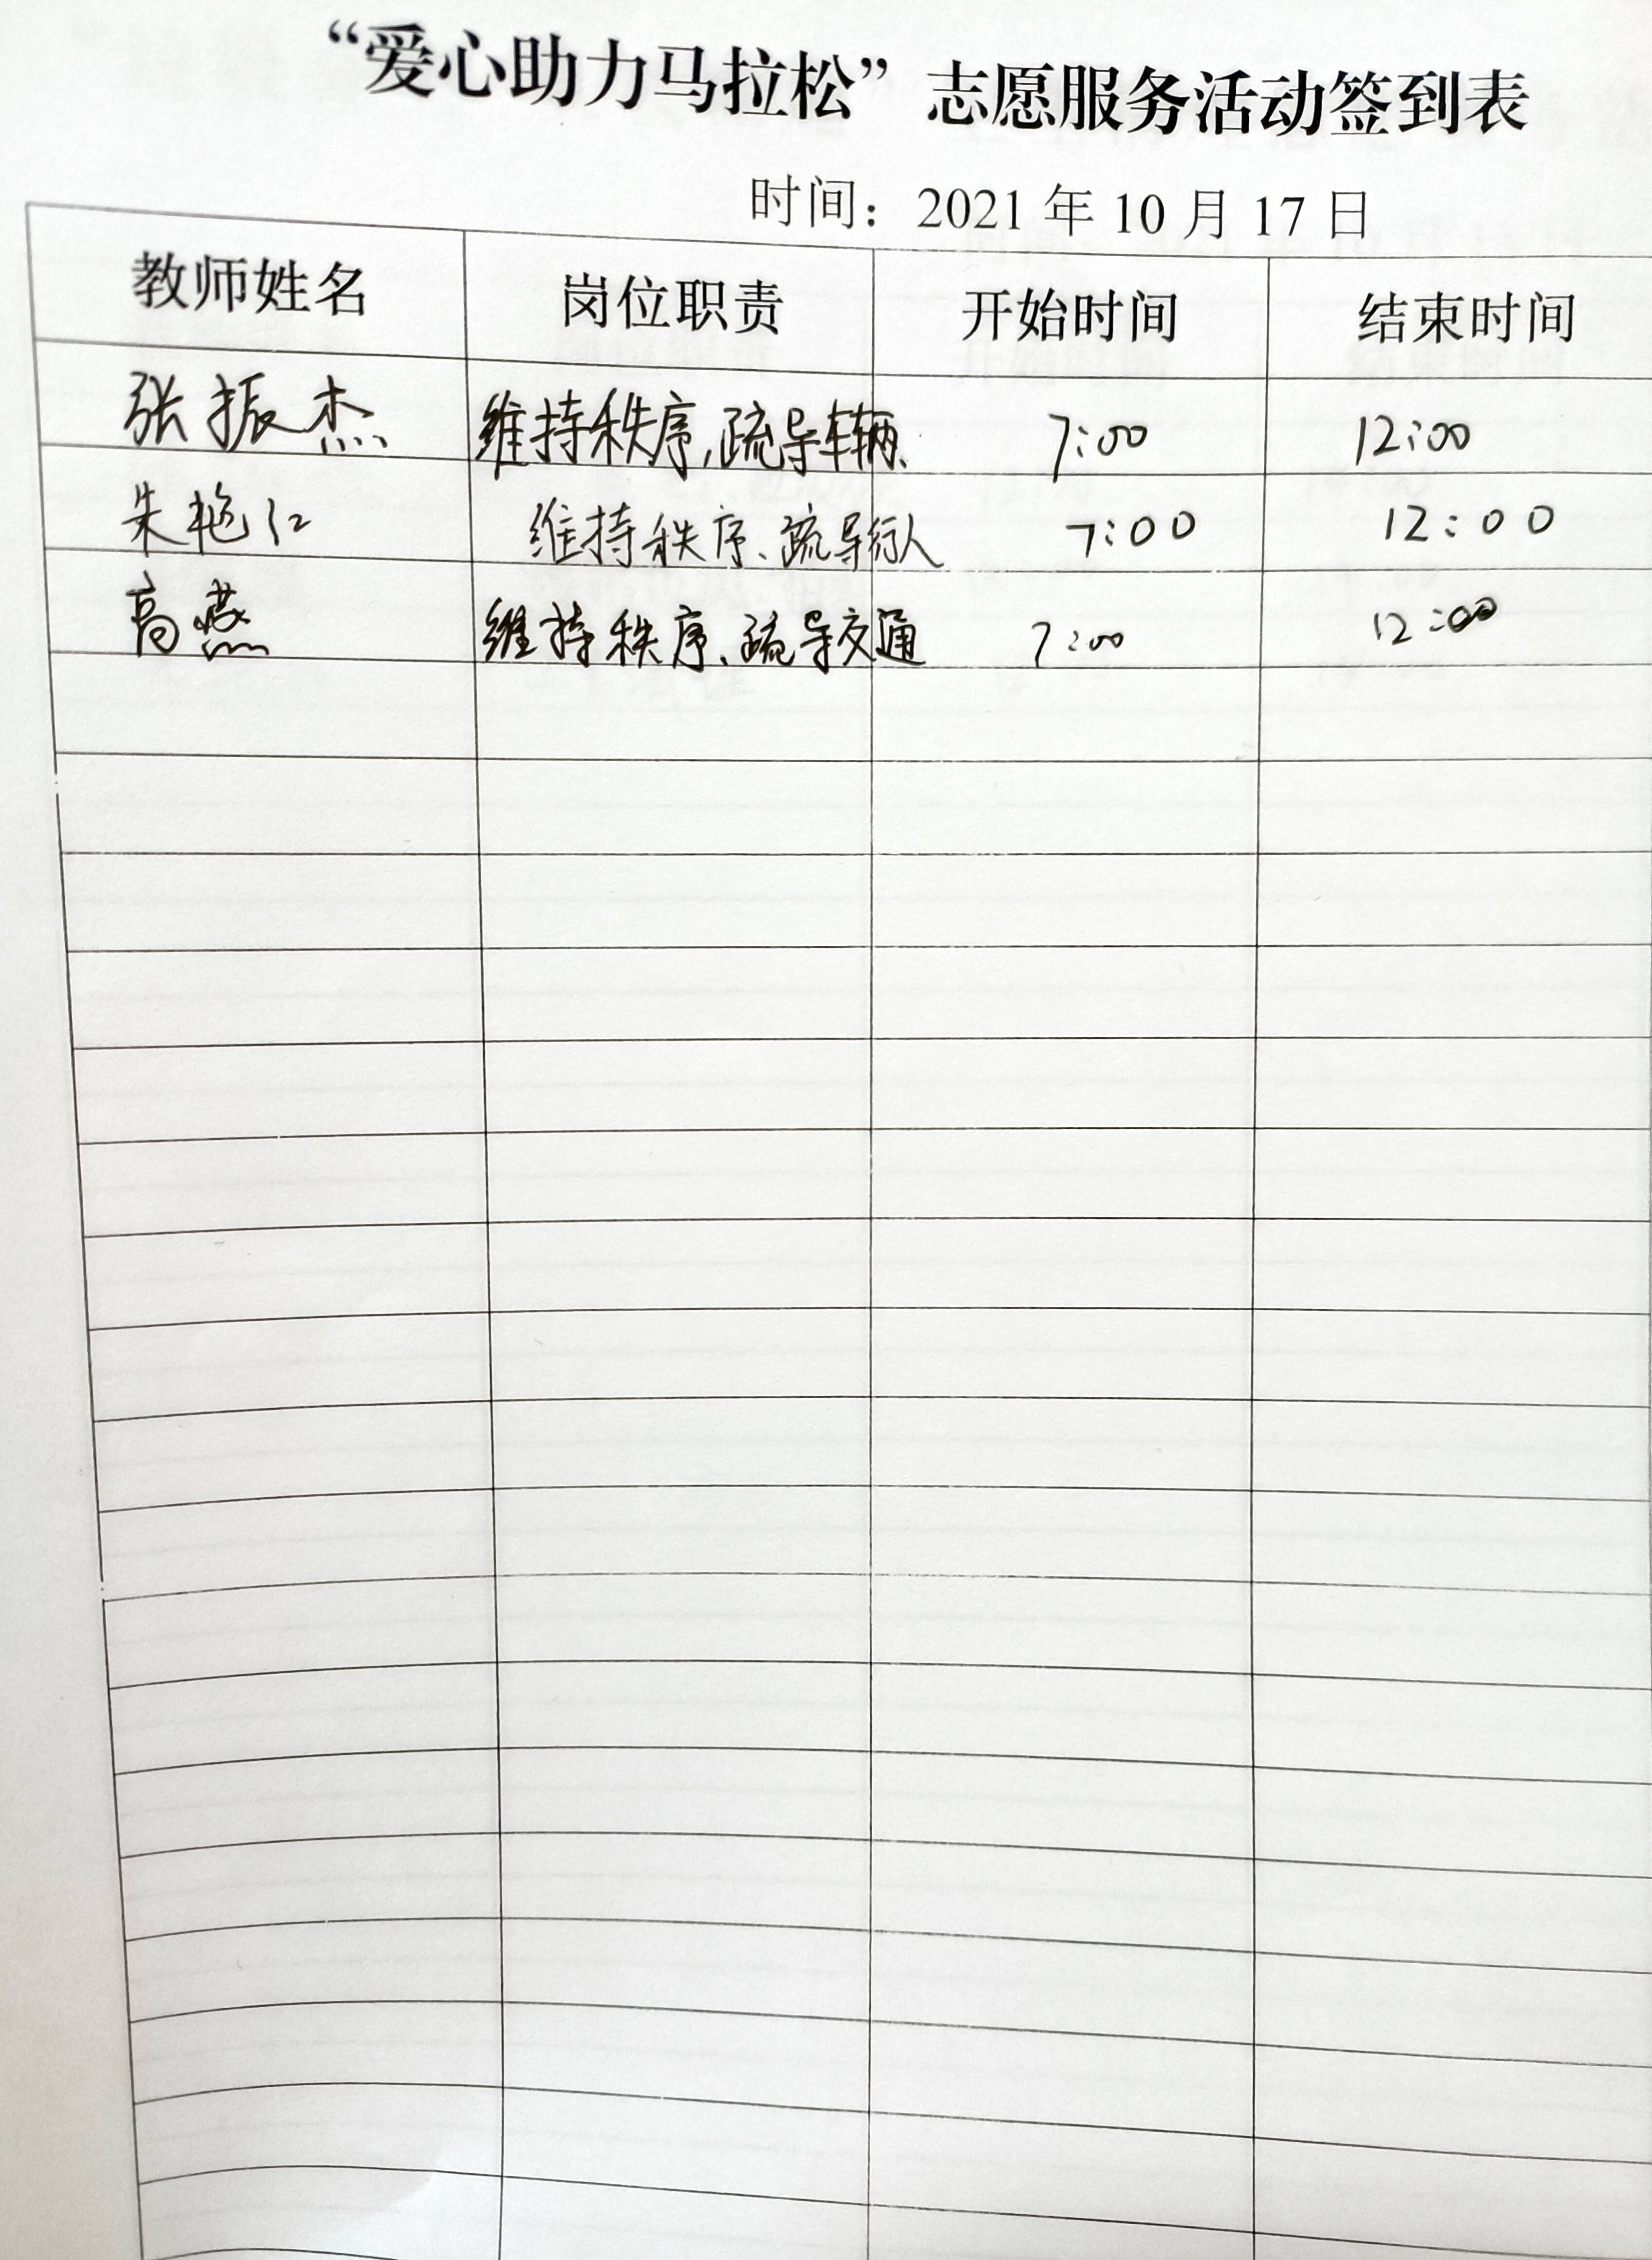 “爱心助力马拉松”志愿服务活动签到表
时间：2021 年 10 月 17 日
教师姓名 岗位职责 开始时间 结束时间
张振杰 维持秩序,疏导车辆、 7:00 12:00
朱艳红 维持秩序、疏导行人 7:00 12:00
高燕 维持秩序、疏导交通 7:00 12:00